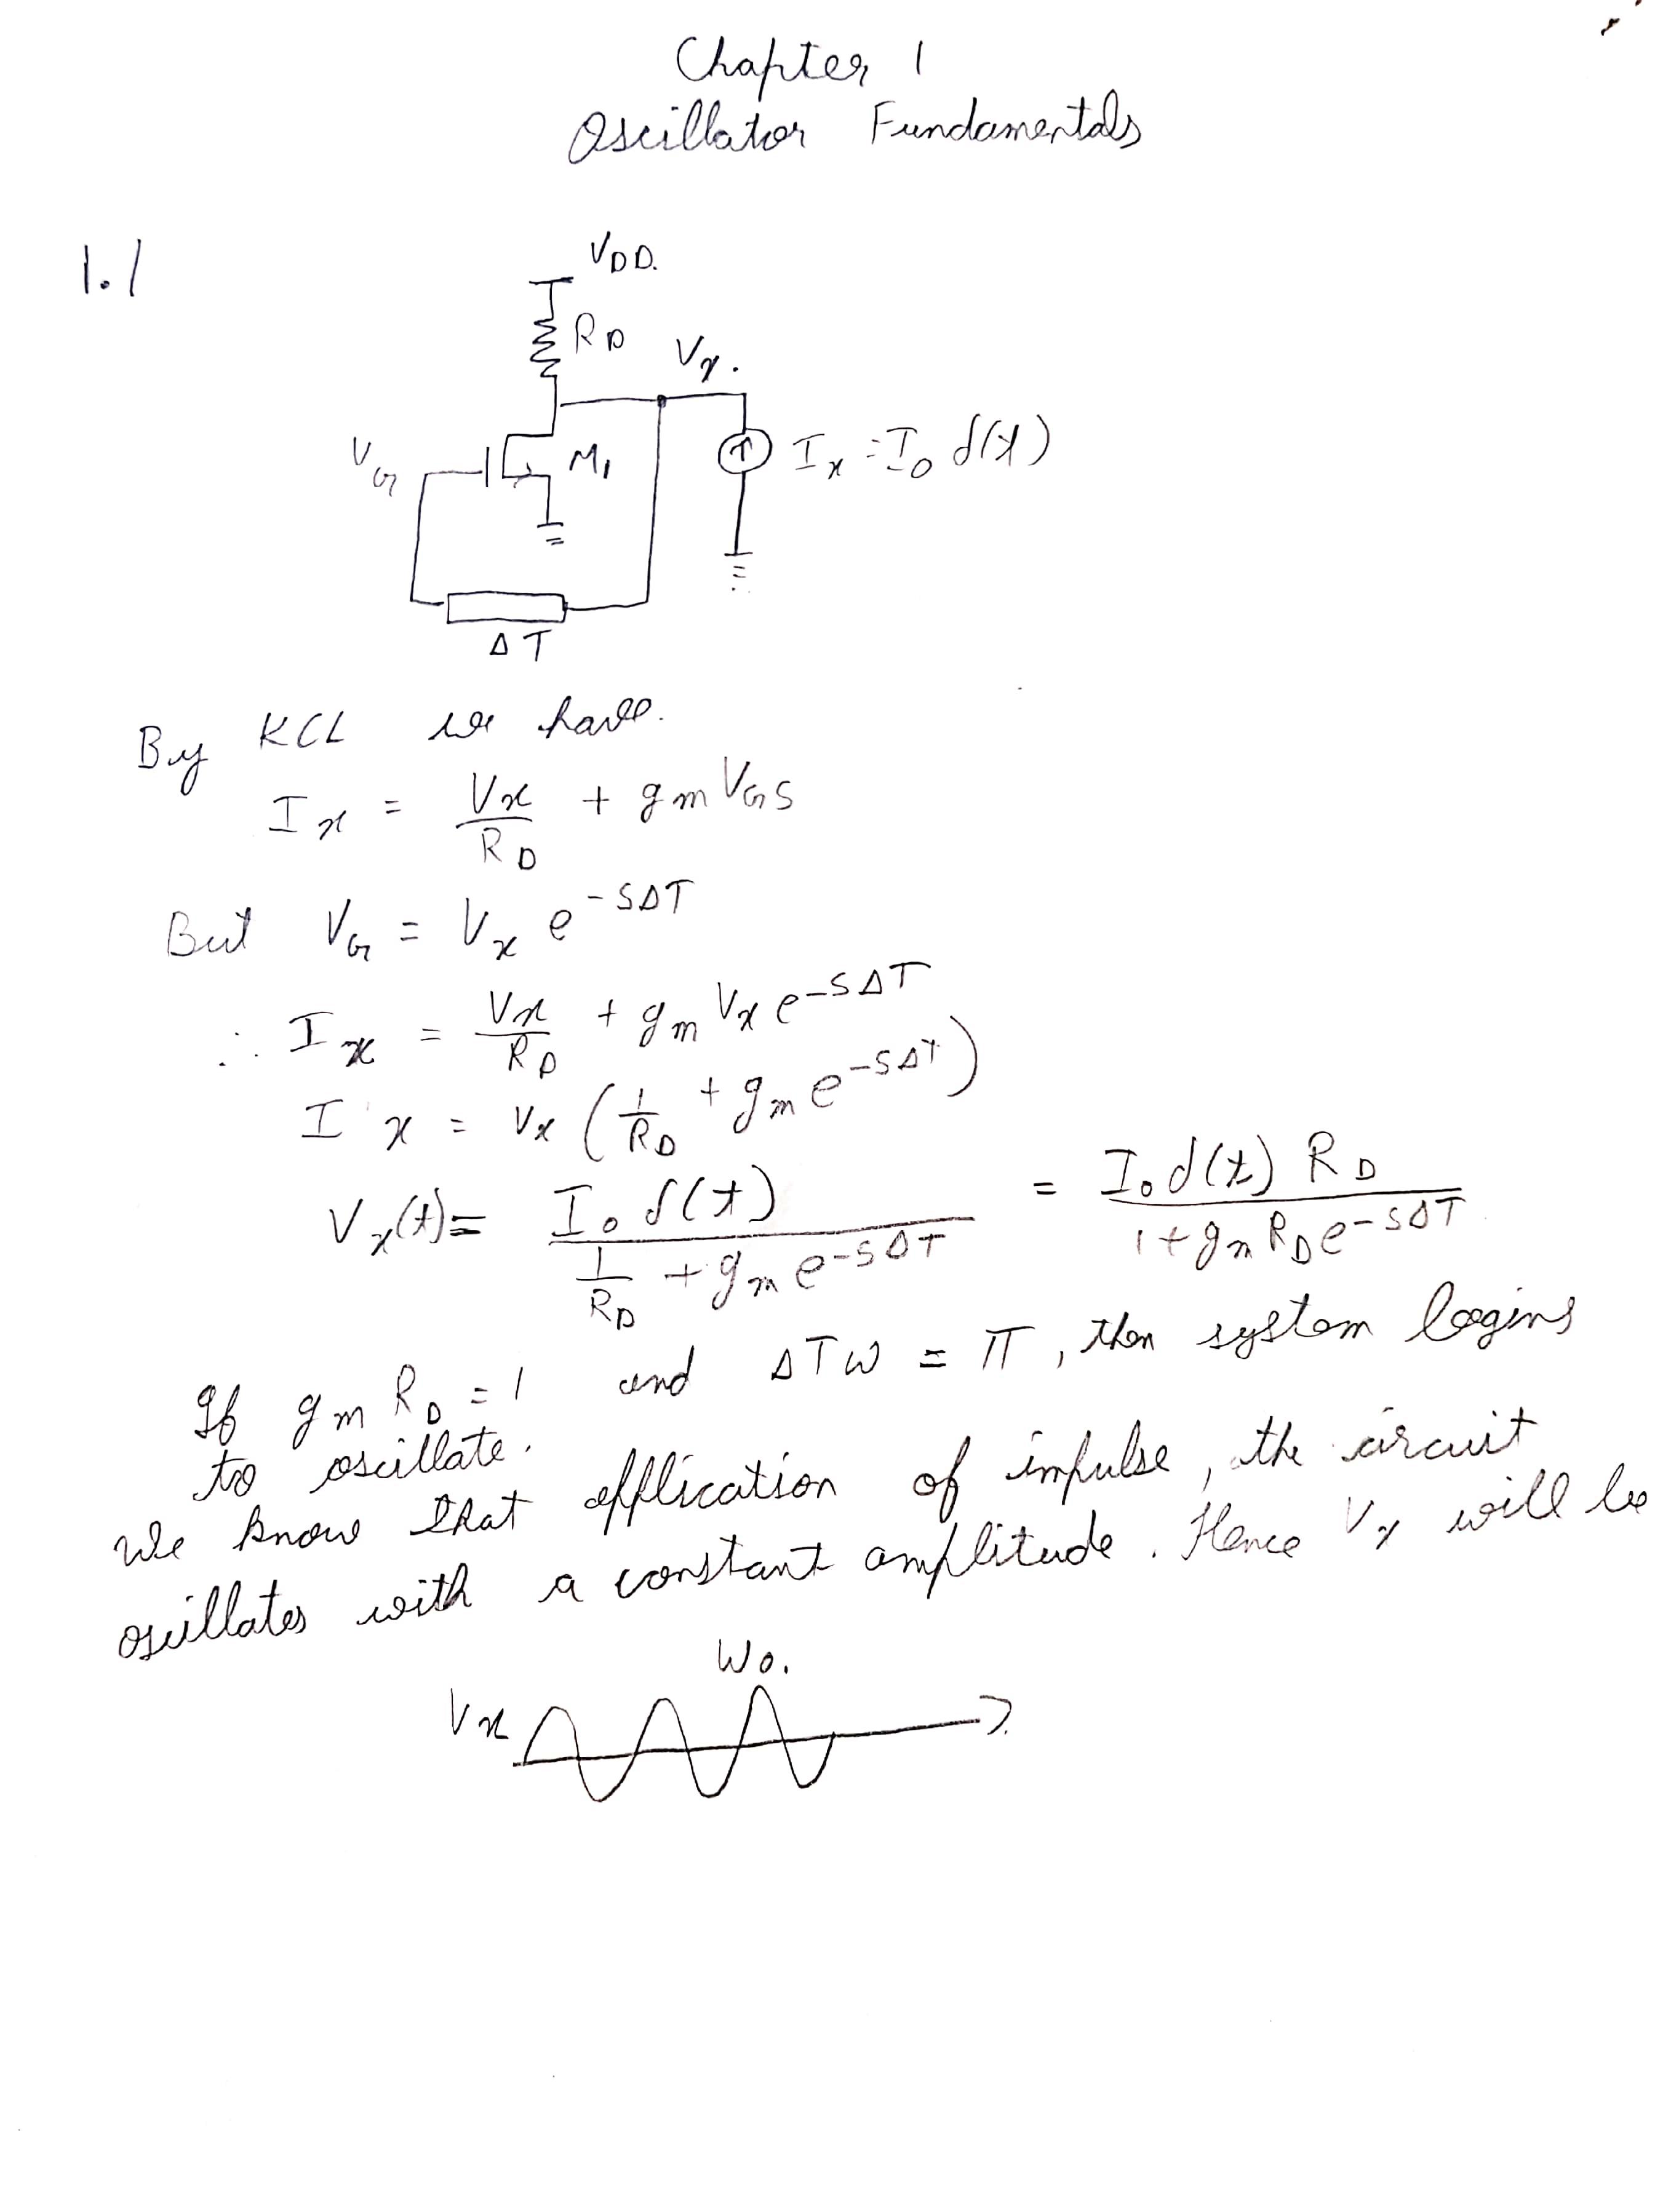 Chapter 1
Oscillator Fundamentals
1.1
VDD.
RD
Vx.
VG
M1
Ix = I0 δ(t)
ΔT
By KCL we have.
Ix = Vx/RD + gm VGS
But VG = Vx e^-SΔT
∴ Ix = Vx/RD + gm Vx e^-SΔT
Ix = Vx (1/RD + gm e^-SΔT)
Vx(t) = I0 δ(t) / (1/RD + gm e^-SΔT) = I0 δ(t) RD / (1 + gm RD e^-SΔT)
If gm RD = 1 and ΔTω = π, then system begins
to oscillate.
We know that application of impulse, the circuit
oscillates with a constant amplitude. Hence Vx will be
W0.
Vx